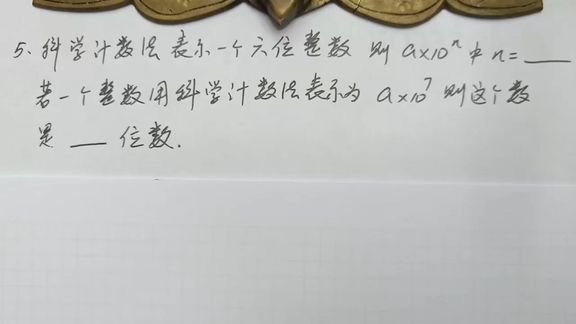 5、科学计数法表示一个六位整数 则 a×10ⁿ中 n=___
若一个整数用科学计数法表示为 a×10⁷ 则这个数
是 ___ 位数.